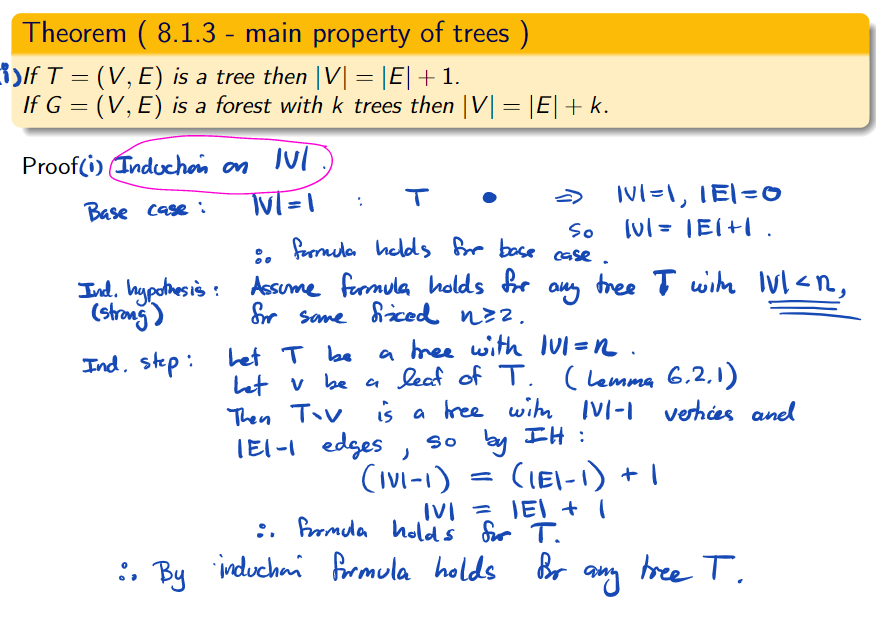 Theorem ( 8.1.3 - main property of trees )
(i) If T = (V, E) is a tree then |V| = |E| + 1.
If G = (V, E) is a forest with k trees then |V| = |E| + k.
Proof (i) Induction on |V|.
Base case : |V|=1 : T • ⇒ |V|=1, |E|=0
so |V| = |E|+1 .
∴ formula holds for base case .
Ind. hypothesis : Assume formula holds for any tree T with |V|<n,
(strong) for some fixed n≥2.
Ind. step : Let T be a tree with |V|=n .
Let v be a leaf of T. ( Lemma 6.2.1)
Then T\v is a tree with |V|-1 vertices and
|E|-1 edges , so by IH :
(|V|-1) = (|E|-1) + 1
|V| = |E| + 1
∴ formula holds for T.
∴ By induction formula holds for any tree T.